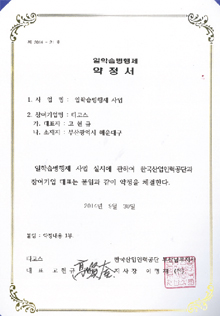 일학습병행제
약 정 서
1. 사 업 명 : 일학습병행제 사업
2. 참여기업명 : 디고스
가. 대표자 : 고 현 규
나. 소재지 : 부산광역시 해운대구
일학습병행제 사업 실시에 관하여 한국산업인력공단과
참여기업 대표는 붙임과 같이 약정을 체결한다.
2014년 5월 30일
붙임 : 약정내용 1부.
디고스 한국산업인력공단
대 표 고현규 지사장